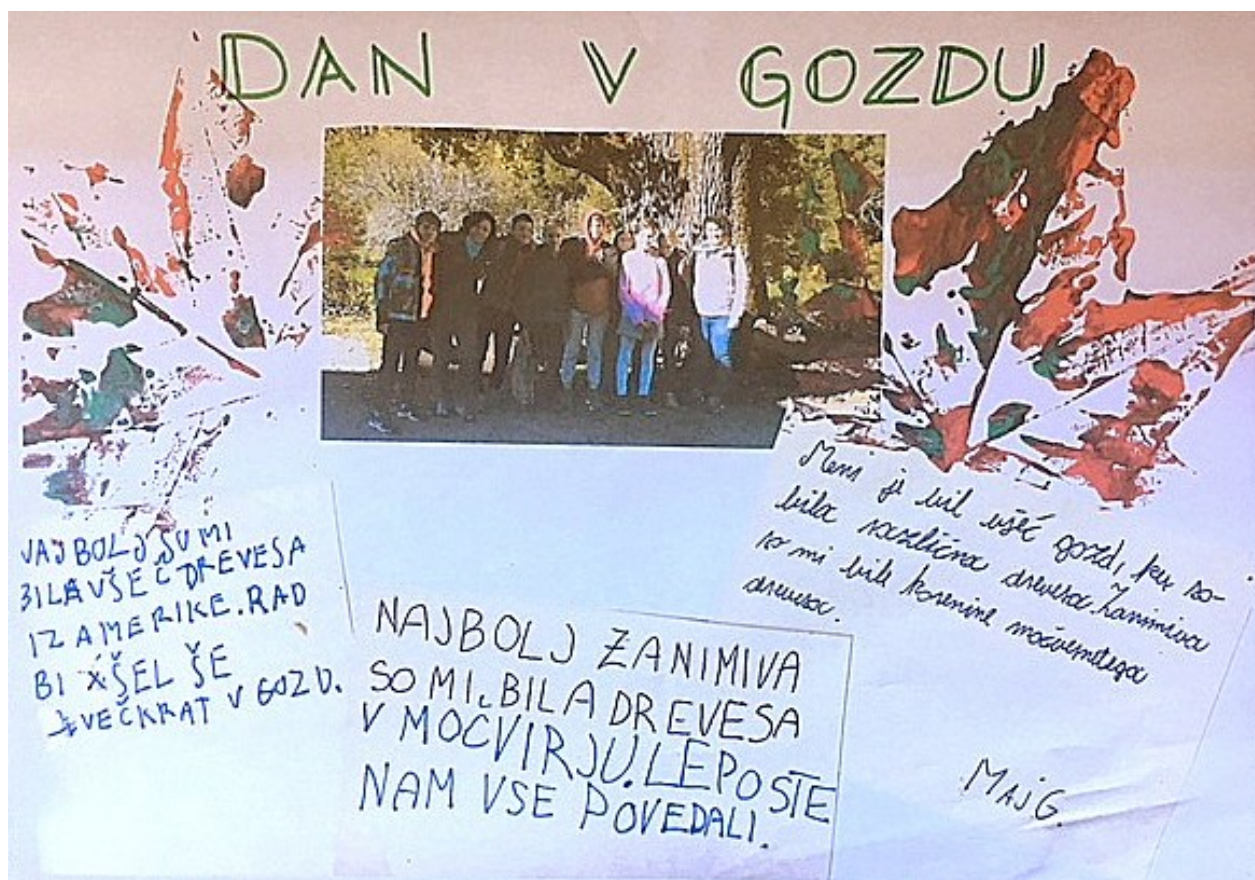 DAN V GOZDU
NAJBOLJ SO MI
BILA VŠEČ DREVESA
IZ AMERIKE. RAD
BI ŠEL ŠE
VEČKRAT V GOZD.
NAJBOLJ ZANIMIVA
SO MI BILA DREVESA
V MOČVIRJU. LEPO STE
NAM VSE POVEDALI.
Meni je bil všeč gozd, ker so
bila različna drevesa. Zanimiva
so mi bile korenine
drevesa.
MAJ G.